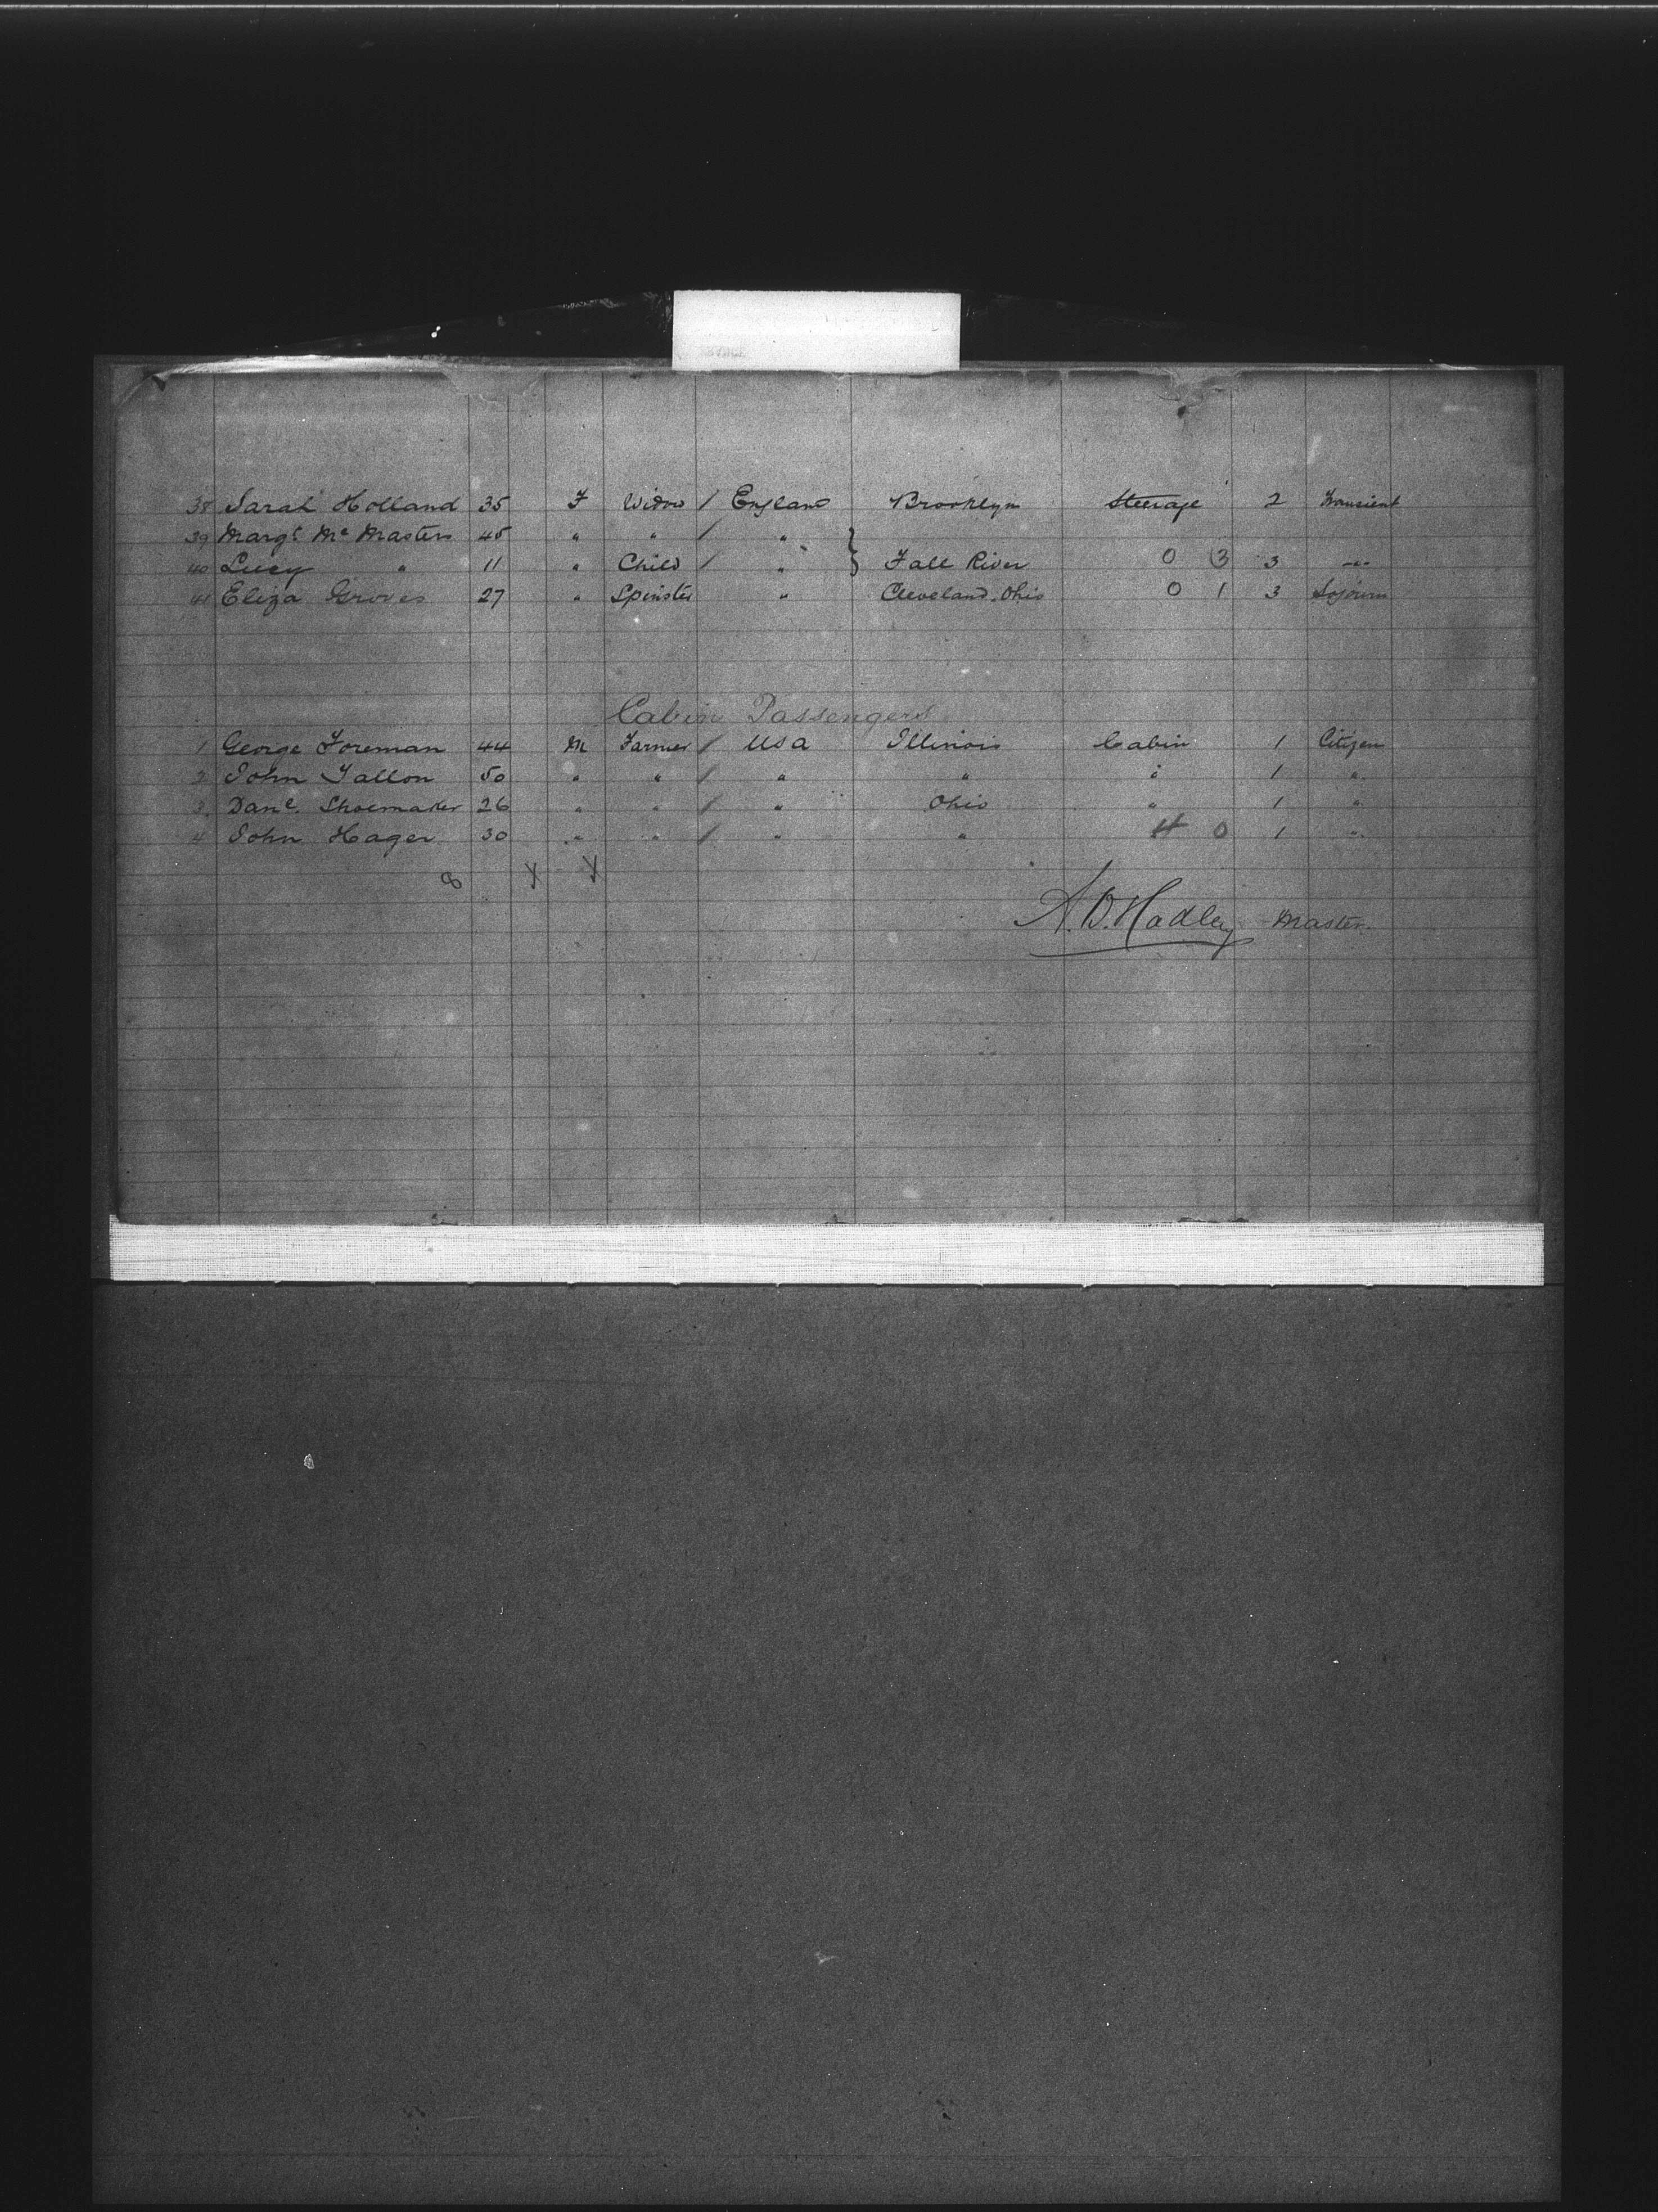 38 Sarah Holland 35 F Widow / England Brooklyn Steerage 2 Transient
39 Margt. Mc Masters 45 " " / "
40 Lucy " 11 " Child / " } Fall River 0 3 3 "
41 Eliza Groves 27 " Spinster " Cleveland. Ohio 0 1 3 Sojourn
Cabin Passengers
1 George Foreman 44 M Farmer / USA Illinois Cabin 1 Citizen
2 John Fallon 50 " " / " " " 1 "
3. Danl. Shoemaker 26 " " / " Ohio " 1 "
4 John Hager 30 " " / " " 0 1 "
8
Master.